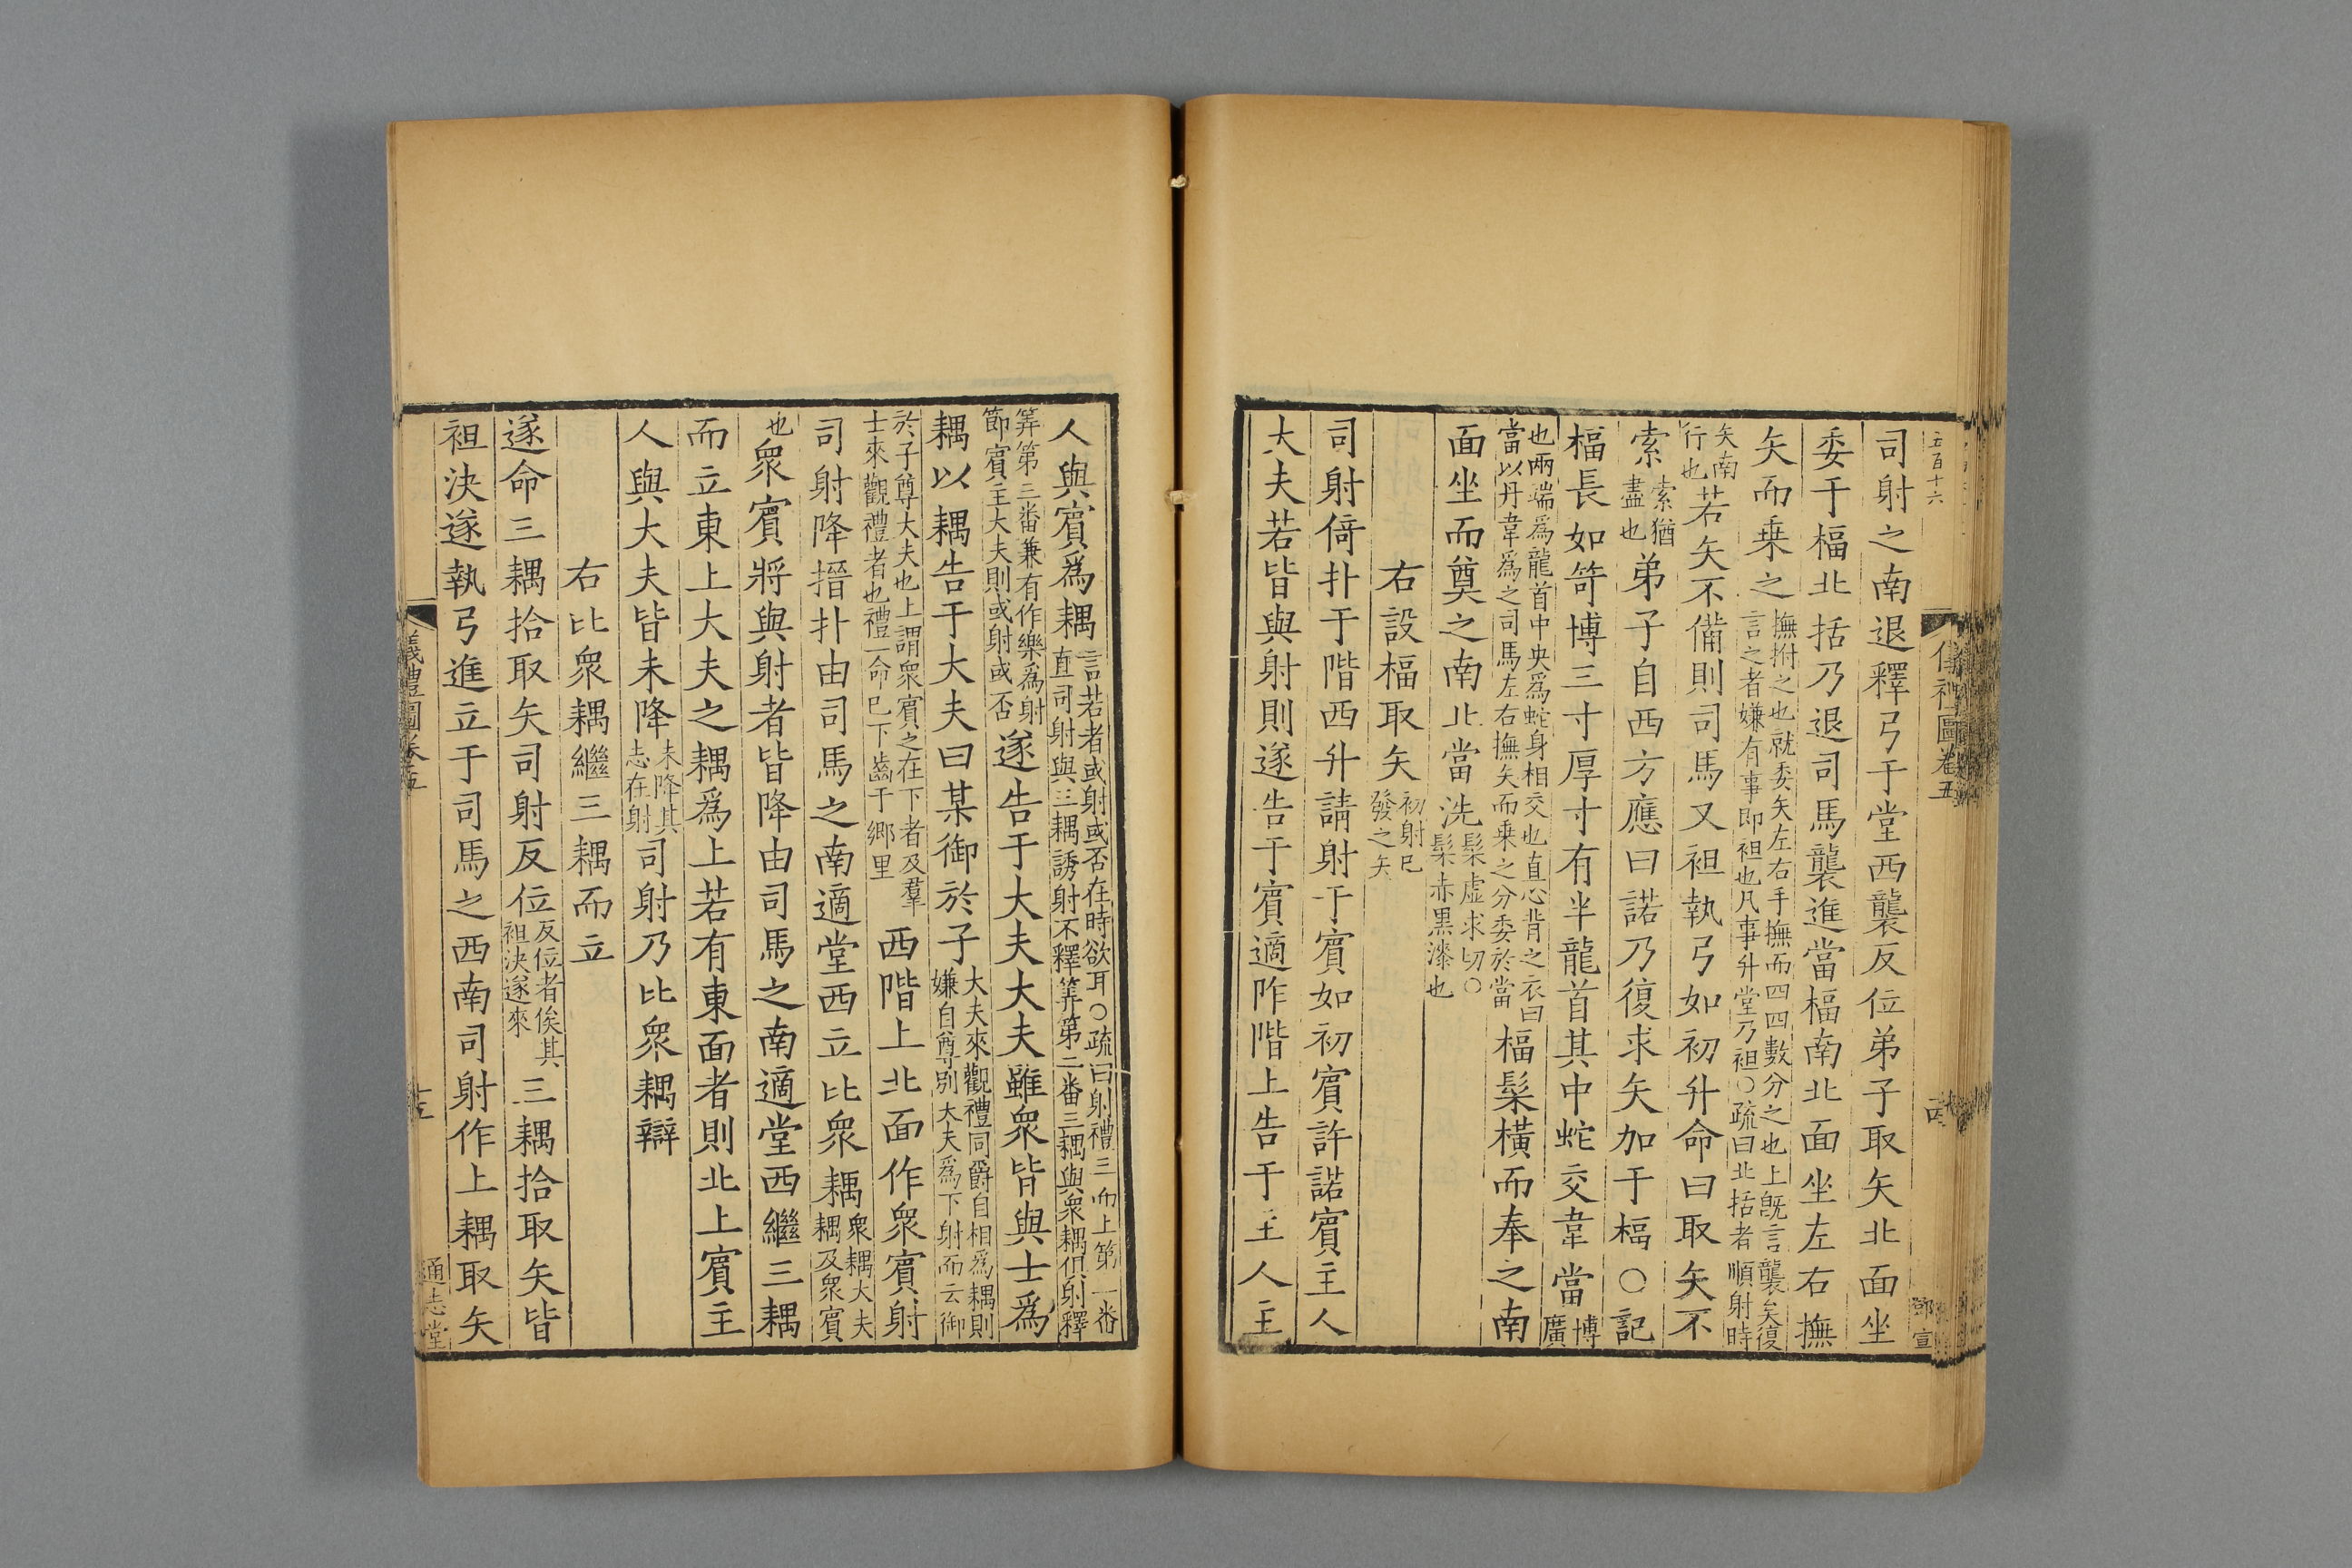 五百十六
儀禮圖卷五
鄧宣
司射之南退釋弓于堂西襲反位弟子取矢北面坐
委于楅北括乃退司馬襲進當楅南北面坐左右撫
矢而乗之撫拊之也就委矢左右手撫而四四數分之也上既言襲矣復
言之者嫌有事即袒也凡事升堂乃袒○疏曰北括者順射時
矢南
行也若矢不備則司馬又袒執弓如初升命曰取矢不
索索猶
盡也弟子自西方應曰諾乃復求矢加于楅○記
楅長如笴博三寸厚寸有半龍首其中蛇交韋當博
廣
也兩端爲龍首中央爲蛇身相交也直心背之衣曰
當以丹韋爲之司馬左右撫矢而乗之分委於當楅髤橫而奉之南
面坐而奠之南北當洗髤虛求切○
髤赤黑漆也
右設楅取矢初射已
發之矢
司射倚扑于階西升請射于賓如初賓許諾賓主人
大夫若皆與射則遂告于賓適阼階上告于主人主
人與賓爲耦言若者或射或否在時欲耳○疏曰射禮三而上第一番
直司射與三耦誘射不釋筭第二番三耦與衆耦俱射釋
筭第三番兼有作樂爲射
節賓主大夫則或射或否遂告于大夫大夫雖衆皆與士爲
耦以耦告于大夫曰某御於子大夫來觀禮同爵自相爲耦則
嫌自尊別大夫爲下射而云御
於子尊大夫也上謂衆賓之在下者及羣
士來觀禮者也禮一命已下齒于鄉里西階上北面作衆賓射
司射降搢扑由司馬之南適堂西立比衆耦衆耦大夫
耦及衆賓
也衆賓將與射者皆降由司馬之南適堂西繼三耦
而立東上大夫之耦爲上若有東面者則北上賓主
人與大夫皆未降未降其
志在射司射乃比衆耦辯
右比衆耦繼三耦而立
遂命三耦拾取矢司射反位反位者俟其
袒決遂來三耦拾取矢皆
袒決遂執弓進立于司馬之西南司射作上耦取矢
儀禮圖卷五
十五
通志堂